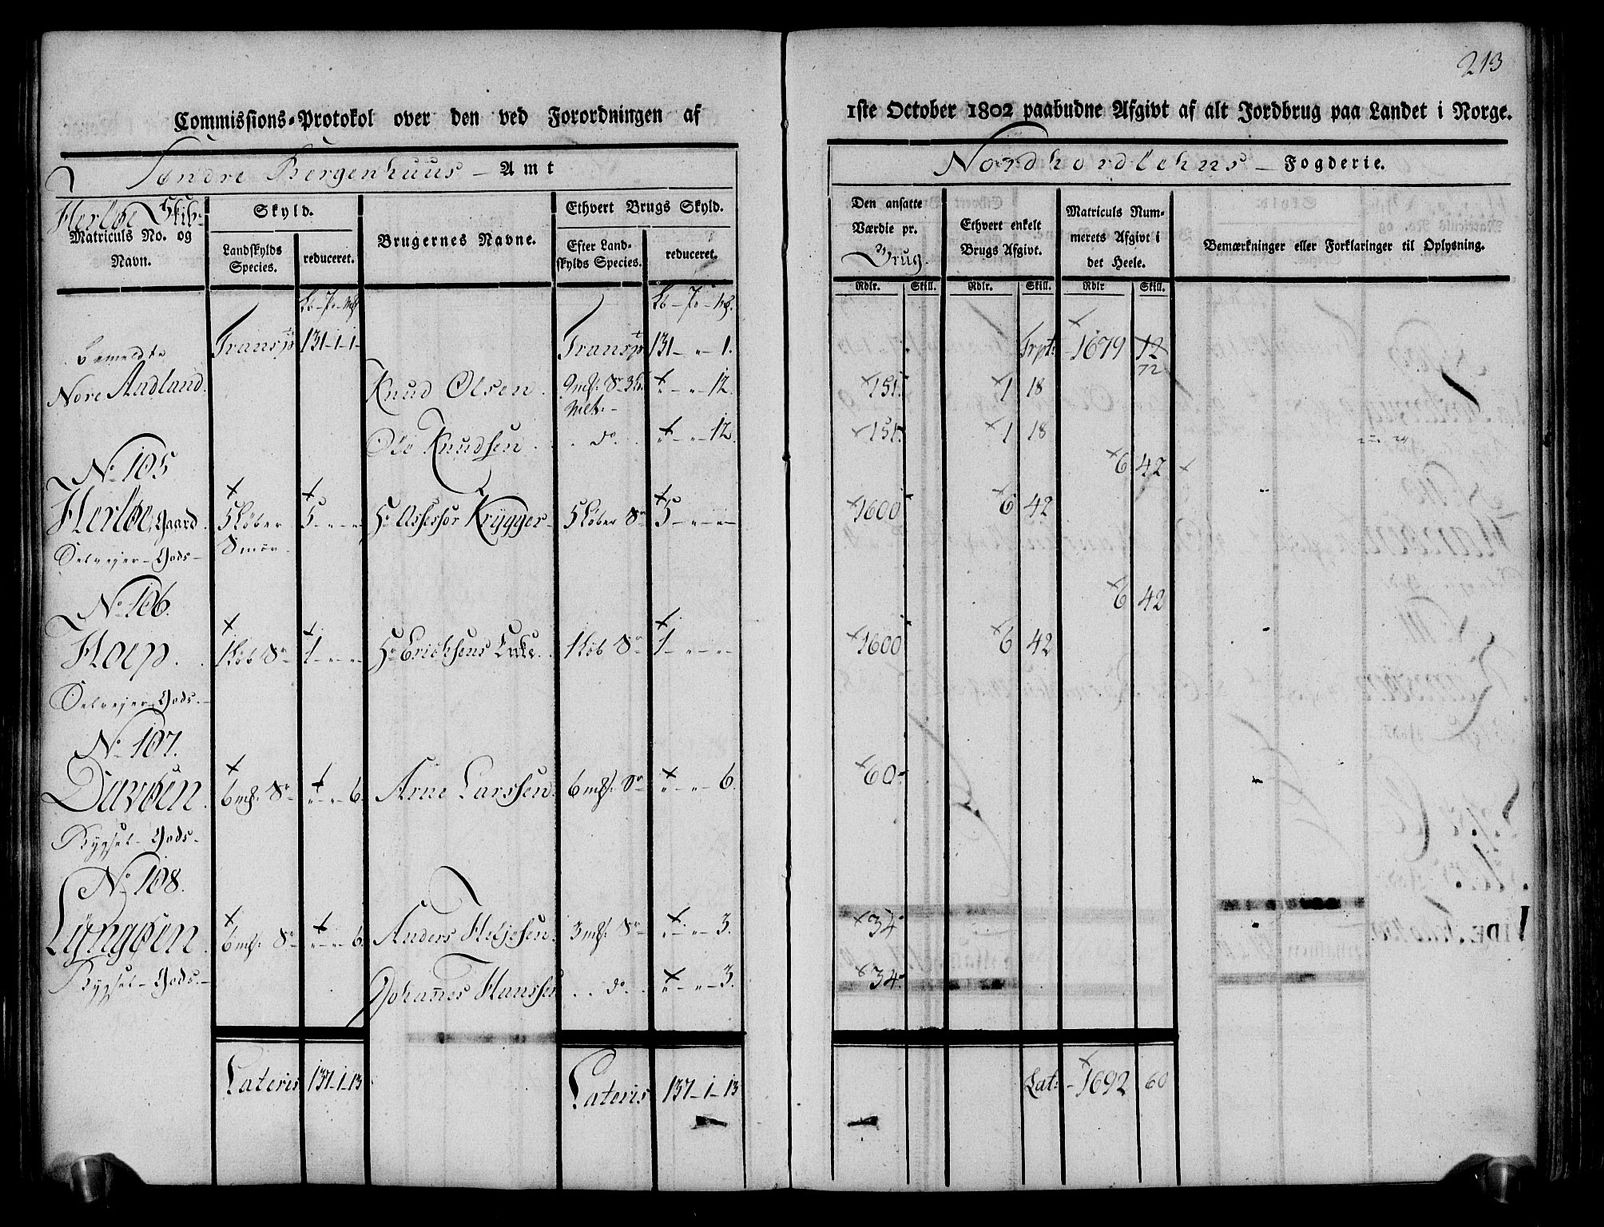 213
Commissions-Protokol over den ved Forordningen af
1ste October 1802 paabudne Afgivt af alt Jordbrug paa Landet i Norge.
Søndre Bergenhuus Amt
Nordhordlehns Fogderie.
Herløe Skib:
Matriculs No. og Navn.
Skyld.
Landskylds Species.
reduceret.
Brugernes Navne.
Ethvert Brugs Skyld.
Efter Landskylds Species.
reduceret.
Den ansatte Værdie pr. Brug.
Ethvert enkelt Brugs Afgivt.
Matriculs Nummerets Afgivt i det Heele.
Bemærkninger eller Forklaringer til Oplysning.
Rdlr. Skill. Rdlr. Skill. Rdlr Skill.
bemeldte Transp 131-1-1- Transp 131- " -1. Trpt: 1679 12
72
Nore Aadland. Knud Olsen. " - " -12. 151. 1 18
Ole Knudsen do " - " -12 151. 1 18
No 105 6 42
Herløe, Gaard 5 Løber Smør 5 - " - " Hr Assessor Krÿgger 5 Løber Sr 5 - " - " 1600 6 42
Selvejer-Gods
No 106. 6 42
Hoep. 1 Løb Sr 1 - " - " Hr Erichsens Enke 1 Løb Sr 1 - " - " 1600 6 42
Selvejer Gods.
No 107.
Davøen 6 mk Sr " - " -6. Arne Larssen 6 mk Sr " - " -6. 60
Bygsel-Gods
No 108.
Lÿngøen 6 mk Sr " - " -6. Anders Heljesen 3 mk Sr " - " -3. 34
Bygsel-Gods Johannes Hanssen do " - " -3. 34
Lateris 137.1.13 Lateris 137-1-13 Lat: 1692 60